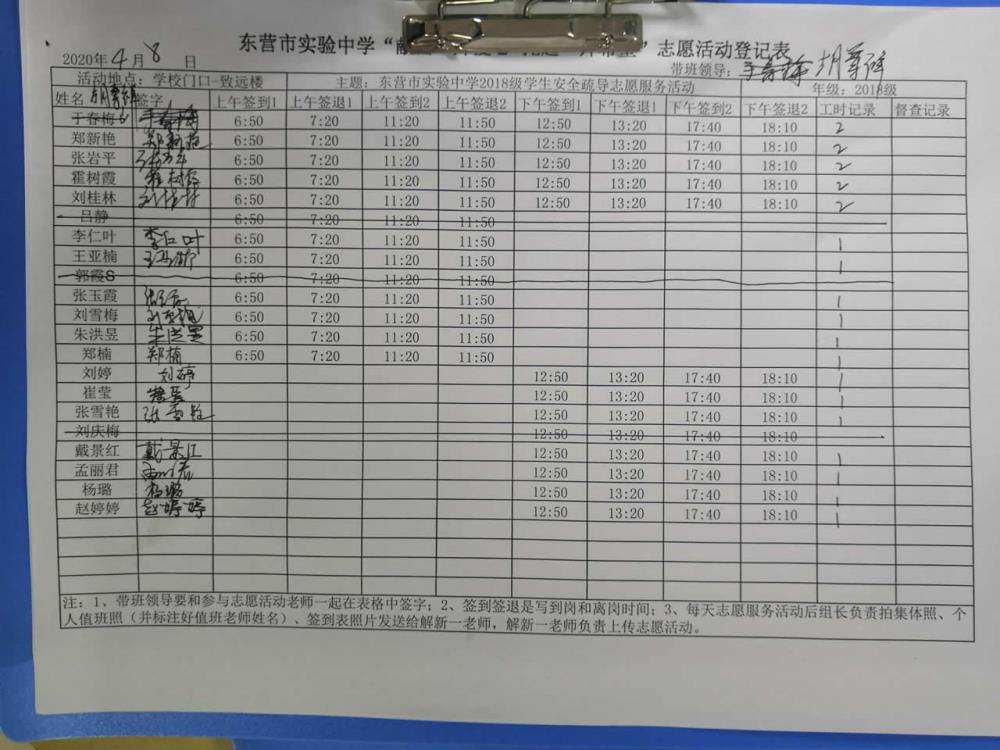 东营市实验中学“献 ”志愿活动登记表
2020年4月8日 带班领导：于春梅 胡
活动地点：学校门口-致远楼 主题：东营市实验中学2018级学生安全疏导志愿服务活动 年级：2018级
姓名 签字 上午签到1 上午签退1 上午签到2 上午签退2 下午签到1 下午签退1 下午签到2 下午签退2 工时记录 督查记录
于春梅 6:50 7:20 11:20 11:50 12:50 13:20 17:40 18:10 2
郑新艳 郑新艳 6:50 7:20 11:20 11:50 12:50 13:20 17:40 18:10 2
张岩平 张岩平 6:50 7:20 11:20 11:50 12:50 13:20 17:40 18:10 2
霍树霞 霍树霞 6:50 7:20 11:20 11:50 12:50 13:20 17:40 18:10 2
刘桂林 刘桂林 6:50 7:20 11:20 11:50 12:50 13:20 17:40 18:10 2
吕静 6:50 7:20 11:20 11:50
李仁叶 李仁叶 6:50 7:20 11:20 11:50 1
王亚楠 王亚楠 6:50 7:20 11:20 11:50 1
郭霞S 6:50 7:20 11:20 11:50
张玉霞 张玉霞 6:50 7:20 11:20 11:50 1
刘雪梅 刘雪梅 6:50 7:20 11:20 11:50 1
朱洪昱 朱洪昱 6:50 7:20 11:20 11:50 1
郑楠 郑楠 6:50 7:20 11:20 11:50 1
刘婷 刘婷 12:50 13:20 17:40 18:10 1
崔莹 崔莹 12:50 13:20 17:40 18:10 1
张雪艳 张雪艳 12:50 13:20 17:40 18:10 1
刘庆梅 12:50 13:20 17:40 18:10
戴景红 戴景红 12:50 13:20 17:40 18:10 1
孟丽君 孟丽君 12:50 13:20 17:40 18:10 1
杨璐 杨璐 12:50 13:20 17:40 18:10 1
赵婷婷 赵婷婷 12:50 13:20 17:40 18:10 1
注：1、带班领导要和参与志愿活动老师一起在表格中签字；2、签到签退是写到岗和离岗时间；3、每天志愿服务活动后组长负责拍集体照、个
人值班照（并标注好值班老师姓名）、签到表照片发送给解新一老师，解新一老师负责上传志愿活动。